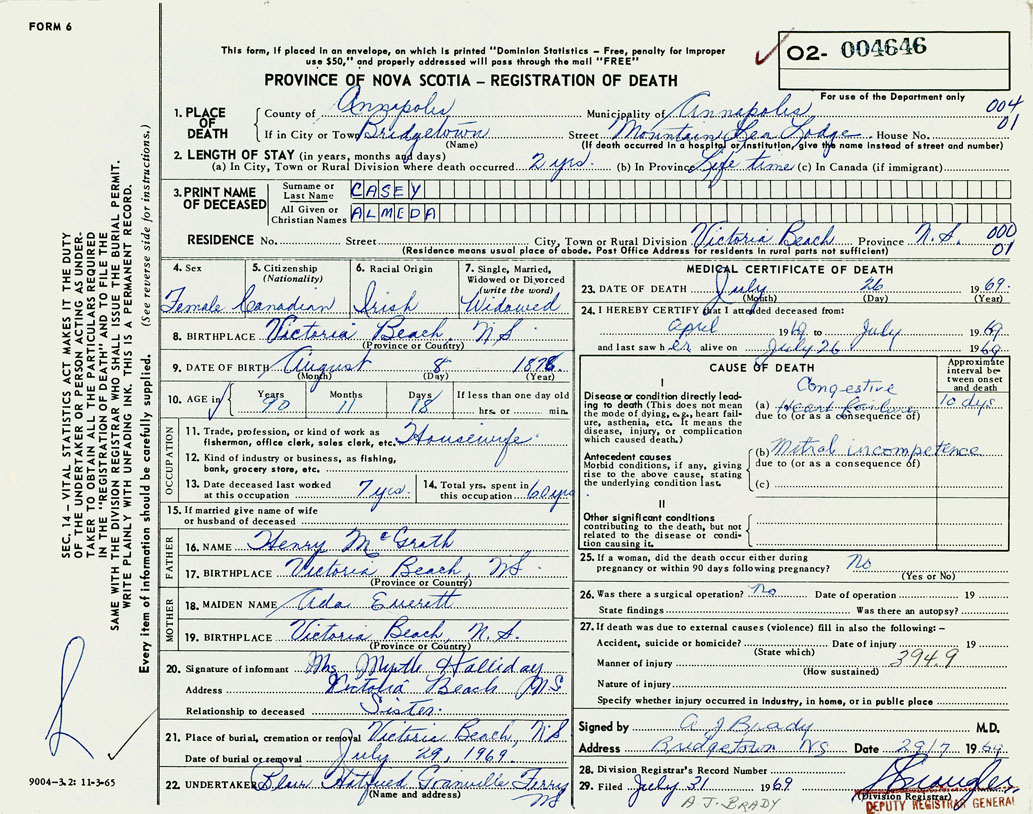 FORM 6
This form, if placed in an envelope, on which is printed "Dominion Statistics – Free, penalty for improper
use $50," and properly addressed will pass through the mail "FREE"
PROVINCE OF NOVA SCOTIA – REGISTRATION OF DEATH
O2- 004646
For use of the Department only
004
01
1. PLACE OF DEATH
County of Annapolis Municipality of Annapolis
If in City or Town Bridgetown Street Mountain Lea Lodge House No.
(Name) (If death occurred in a hospital or institution, give the name instead of street and number)
2. LENGTH OF STAY (in years, months and days)
(a) In City, Town or Rural Division where death occurred 2 yrs. (b) In Province Life time (c) In Canada (if immigrant)
3. PRINT NAME OF DECEASED
Surname or Last Name CASEY
All Given or Christian Names ALMEDA
RESIDENCE No. Street City, Town or Rural Division Victoria Beach Province N.S. 000
01
(Residence means usual place of abode. Post Office Address for residents in rural parts not sufficient)
4. Sex
Female
5. Citizenship
(Nationality)
Canadian
6. Racial Origin
Irish
7. Single, Married,
Widowed or Divorced
(write the word)
Widowed
8. BIRTHPLACE Victoria Beach, NS
(Province or Country)
9. DATE OF BIRTH August 8 1878.
(Month) (Day) (Year)
10. AGE in Years Months Days If less than one day old
90 11 18 hrs. or min.
OCCUPATION
11. Trade, profession, or kind of work as
fisherman, office clerk, sales clerk, etc. Housewife
12. Kind of industry or business, as fishing,
bank, grocery store, etc.
13. Date deceased last worked
at this occupation 7 yrs.
14. Total yrs. spent in
this occupation 60 yrs
15. If married give name of wife
or husband of deceased
FATHER
16. NAME Henry McGrath
17. BIRTHPLACE Victoria Beach, NS.
(Province or Country)
MOTHER
18. MAIDEN NAME Ada Everett
19. BIRTHPLACE Victoria Beach, N.S.
(Province or Country)
20. Signature of informant Mrs Myrtle Halliday
Address Victoria Beach NS
Relationship to deceased Sister.
21. Place of burial, cremation or removal Victoria Beach, NS
Date of burial or removal July 29, 1969.
22. UNDERTAKER Blair Hatfield Granville Ferry
NS
(Name and address)
MEDICAL CERTIFICATE OF DEATH
23. DATE OF DEATH July 26 1969.
(Month) (Day) (Year)
24. I HEREBY CERTIFY that I attended deceased from:
April 1969 to July 1969
and last saw her alive on July 26 1969
CAUSE OF DEATH
Approximate interval be-
tween onset and death
I
Disease or condition directly lead-
ing to death (This does not mean
the mode of dying, e.g., heart fail-
ure, asthenia, etc. It means the
disease, injury, or complication
which caused death.)
Congestive
(a) Heart failure 10 dys
due to (or as a consequence of)
Antecedent causes
Morbid conditions, if any, giving
rise to the above cause, stating
the underlying condition last.
(b) Mitral incompetence
due to (or as a consequence of)
(c)
II
Other significant conditions
contributing to the death, but not
related to the disease or condi-
tion causing it.
25. If a woman, did the death occur either during
pregnancy or within 90 days following pregnancy? No
(Yes or No)
26. Was there a surgical operation? No Date of operation 19
State findings Was there an autopsy?
27. If death was due to external causes (violence) fill in also the following: –
Accident, suicide or homicide? Date of injury 19
(State which)
Manner of injury 3949
(How sustained)
Nature of injury
Specify whether injury occurred in Industry, in home, or in public place
Signed by A J Brady M.D.
Address Bridgetown NS Date 29/7 1969
28. Division Registrar's Record Number
29. Filed July 31 1969
(Division Registrar)
A J. BRADY
DEPUTY REGISTRAR GENERAL
SEC. 14 – VITAL STATISTICS ACT MAKES IT THE DUTY
OF THE UNDERTAKER OR PERSON ACTING AS UNDER-
TAKER TO OBTAIN ALL THE PARTICULARS REQUIRED
IN THE "REGISTRATION OF DEATH" AND TO FILE THE
SAME WITH THE DIVISION REGISTRAR WHO SHALL ISSUE THE BURIAL PERMIT.
WRITE PLAINLY WITH UNFADING INK. THIS IS A PERMANENT RECORD.
Every item of information should be carefully supplied. (See reverse side for instructions.)
9004–3.2: 11-3-65